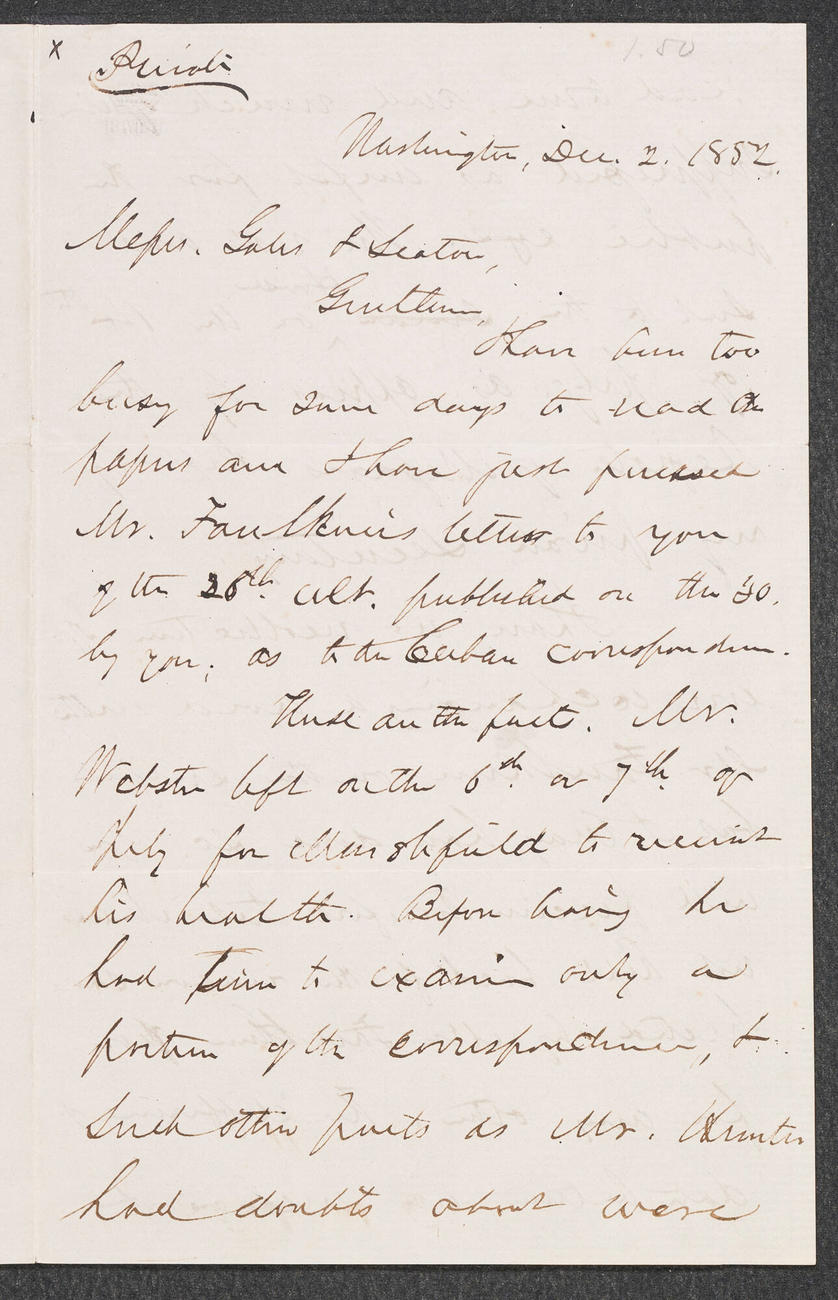 x
Private
1.50
Washington, Dec. 2. 1852.
Messrs. Gales & Seaton,
Gentlemen,
I have been too
busy for some days to read the
papers and I have just perused
Mr. Faulkner's letter to you
of the 26th. ult. published on the 30.
by you, as to the Cuban correspondence.
These are the facts. Mr.
Webster left on the 6th. or 7th. of
July for Marshfield to recruit
his health. Before leaving he
had time to examine only a
portion of the correspondence, &
such other parts as Mr. Hunter
had doubts about were